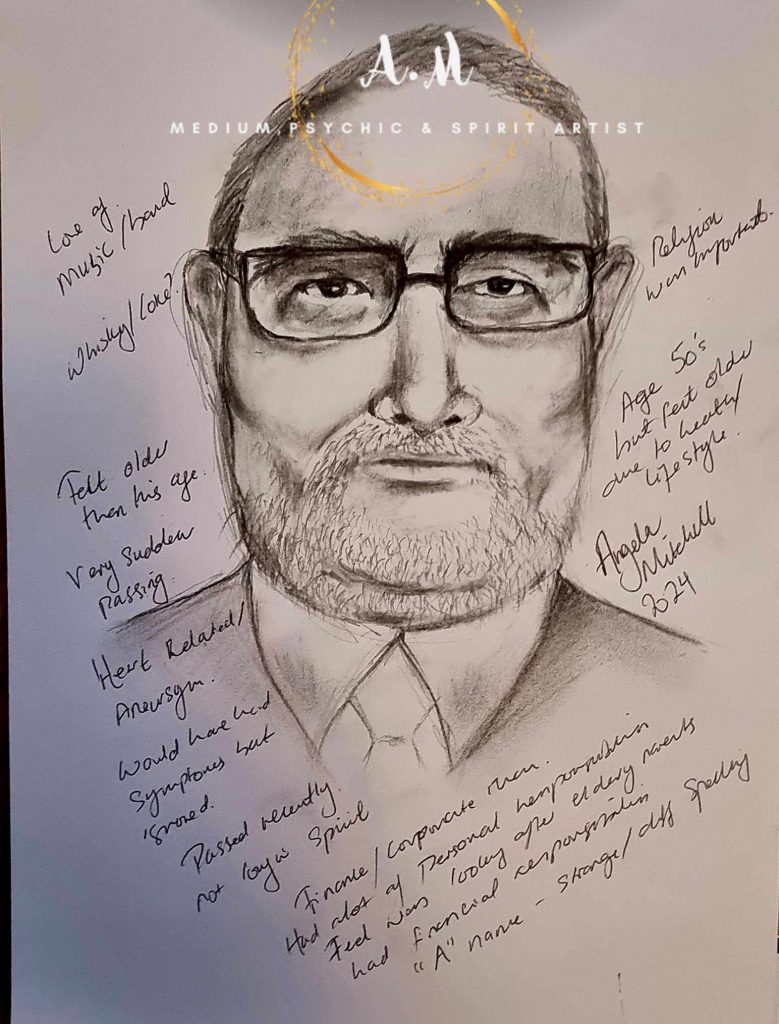 A.M
MEDIUM, PSYCHIC & SPIRIT ARTIST
Love of
Music/band
Whisky/Love?
Felt older
then his age.
Very sudden
passing.
Heart Related/
Aneursym.
Would have had
Symptoms but
ignored.
Passed recently
not long in Spirit
Religion
was important.
Age 50's
but felt older
due to health/
lifestyle.
Angela
Mitchell
2024
Finance/Corporate man.
Had alot of Personal responsibilities
Feel was looking after elderly parents
had financial responsibilities
"A" name - Strange/diff Spelling